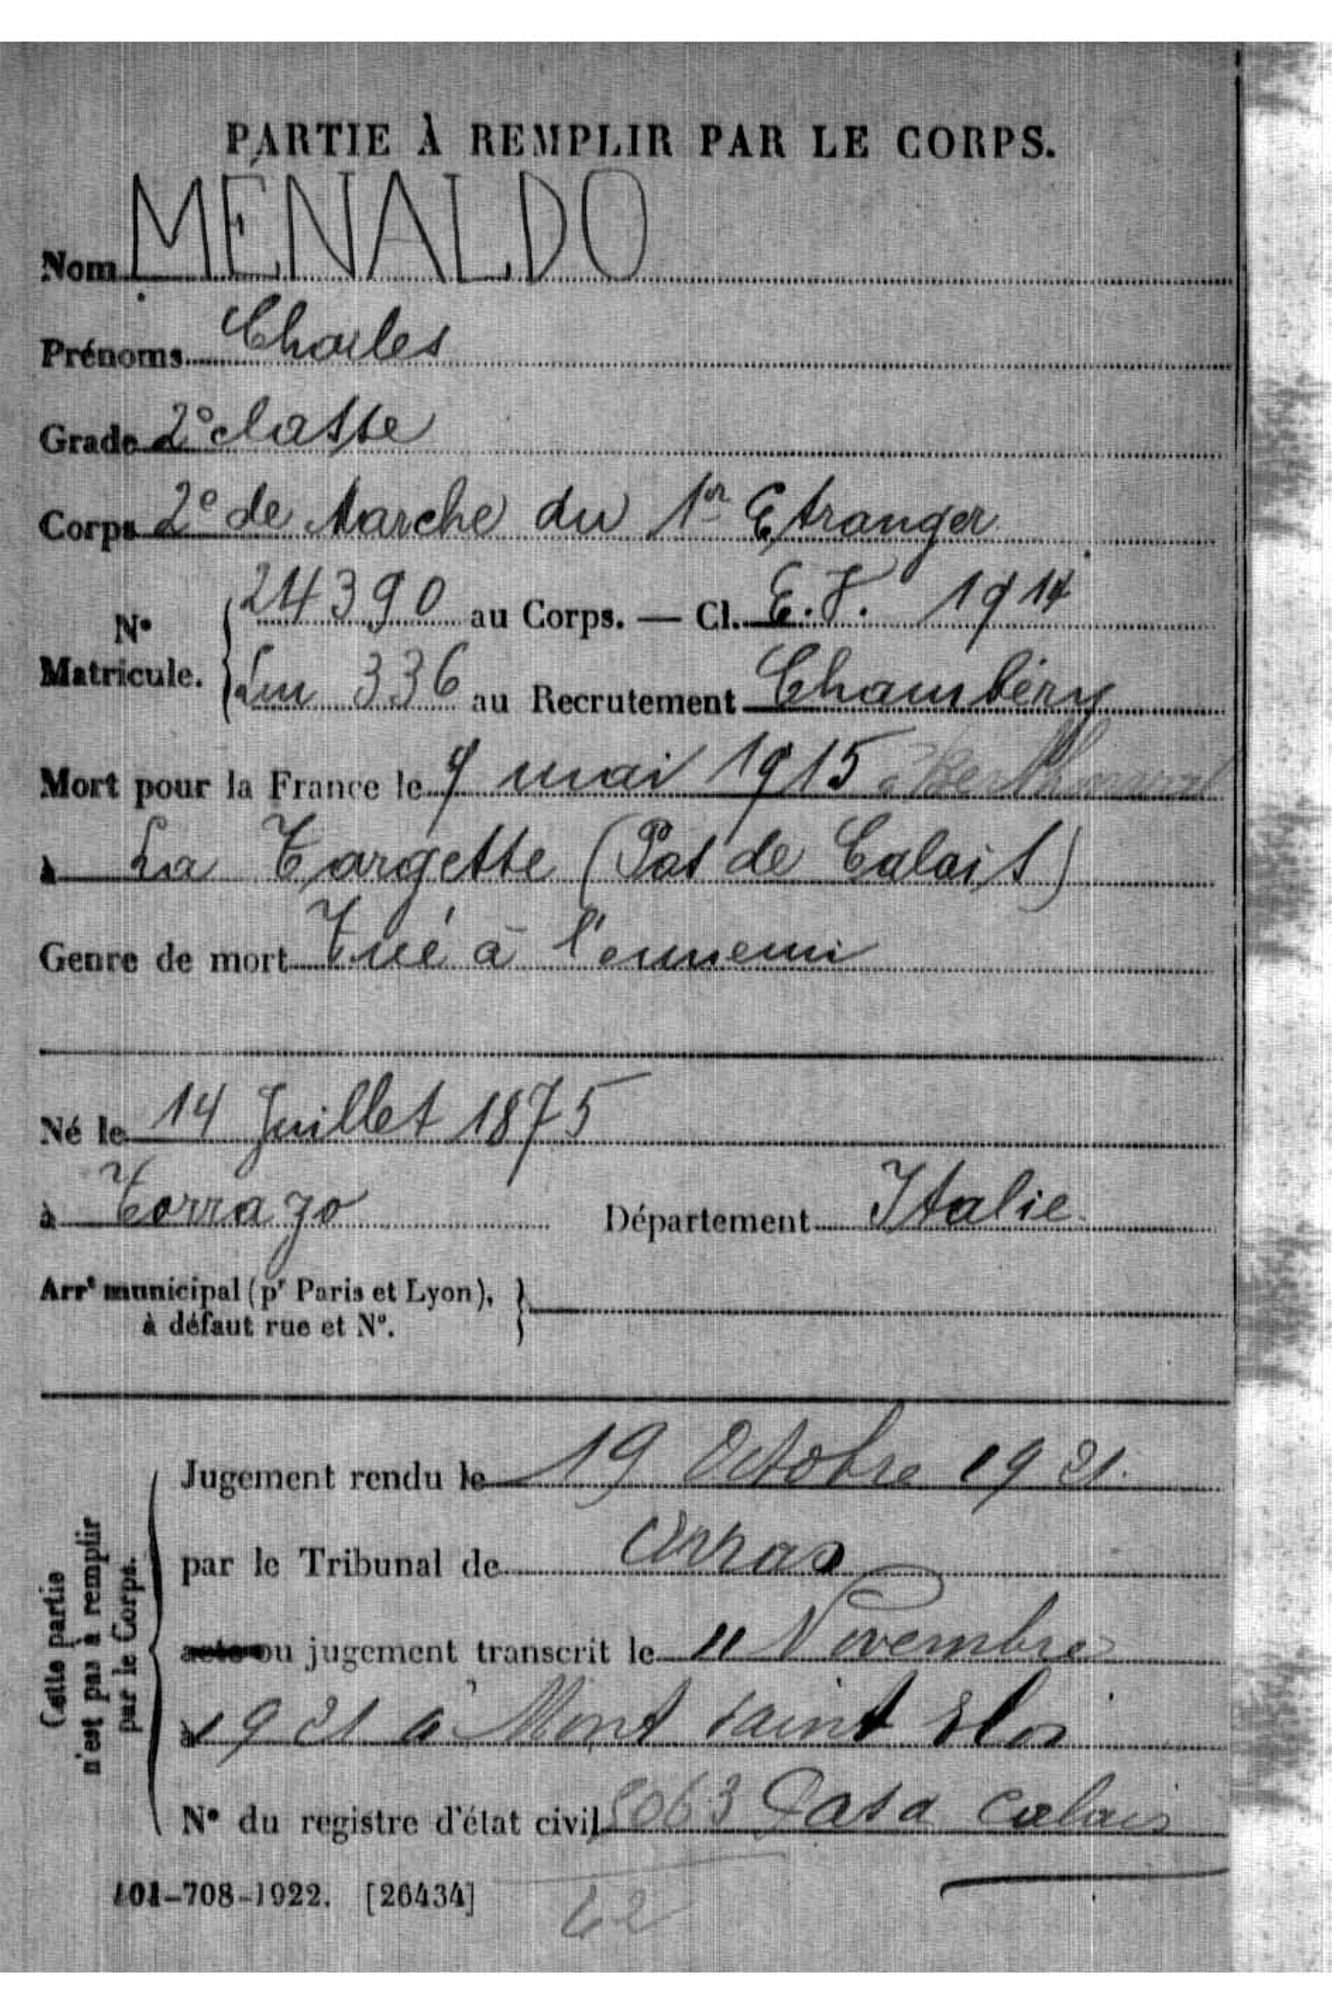 PARTIE À REMPLIR PAR LE CORPS.
Nom MÉNALDO
Prénoms Charles
Grade 2e classe
Corps 2e de Marche du 1er Etranger
No Matricule. 24390 au Corps. — Cl. E.V. 1914
Lm 336 au Recrutement Chambéry
Mort pour la France le 9 mai 1915 à Berthonval
à La Targette (Pas de Calais)
Genre de mort Tué à l'ennemi
Né le 14 Juillet 1875
à Torrazo Département Italie
Arrt municipal (pr Paris et Lyon),
à défaut rue et No.
Cette partie
n'est pas à remplir
par le Corps.
Jugement rendu le 19 Octobre 1921.
par le Tribunal de Arras
acte ou jugement transcrit le 11 Novembre
à 1921 à Mont Saint Eloi
No du registre d'état civil 5063 Pas d Calais
101-708-1922. [26434]
62